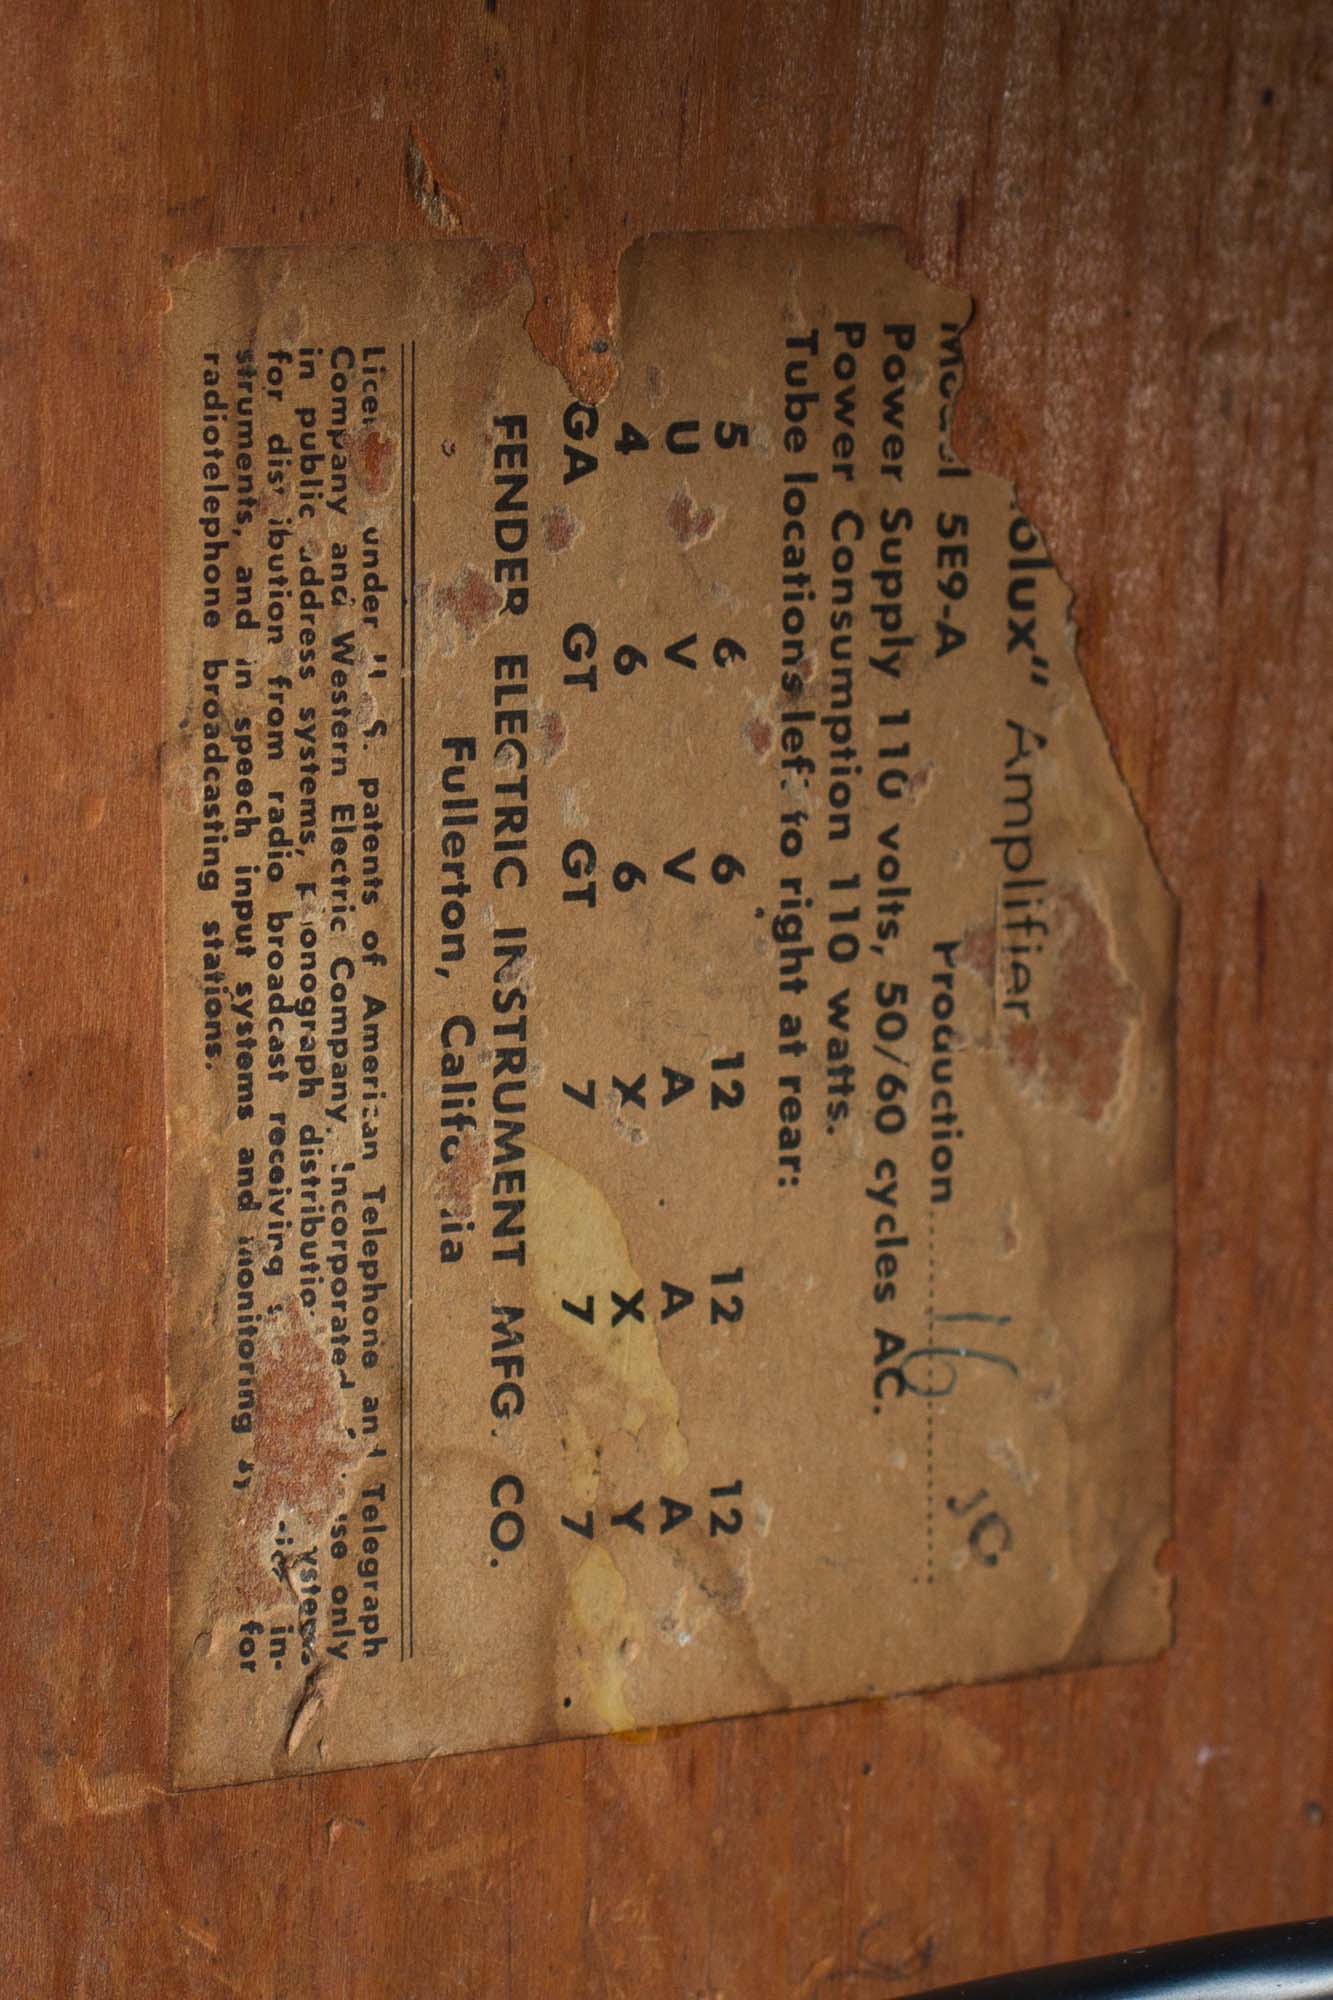 olux" Amplifier
5E9-A Production 16 JC
Power Supply 110 volts, 50/60 cycles AC.
Power Consumption 110 watts.
Tube locations left to right at rear:
5 6 6 12 12 12
U V V A A A
4 6 6 X X Y
GA GT GT 7 7 7
FENDER ELECTRIC INSTRUMENT MFG. CO.
Fullerton, California
under U. S. patents of American Telephone and Telegraph
Company and Western Electric Company, Incorporated use only
in public address systems, phonograph distribution
for distribution from radio broadcast receiving in-
struments, and in speech input systems and monitoring for
radiotelephone broadcasting stations.